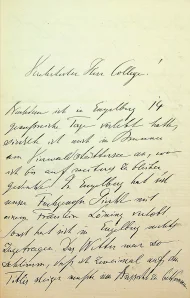 Verehrtester Herr College!
Nachdem ich in Engelberg 14
genussreiche Tage verlebt hatte,
ich nach Brunnen
am Vierwaldstättersee
ich bis auf weiteres zu bleiben
gedenke. In Engelberg hat sich
unser
einem Fräulein Löning verlobt
Sonst hat sich in Engelberg nichts
zugetragen. Das Wetter war so
schlimm, dass ich zweimal auf den
Titlis steigen musste um